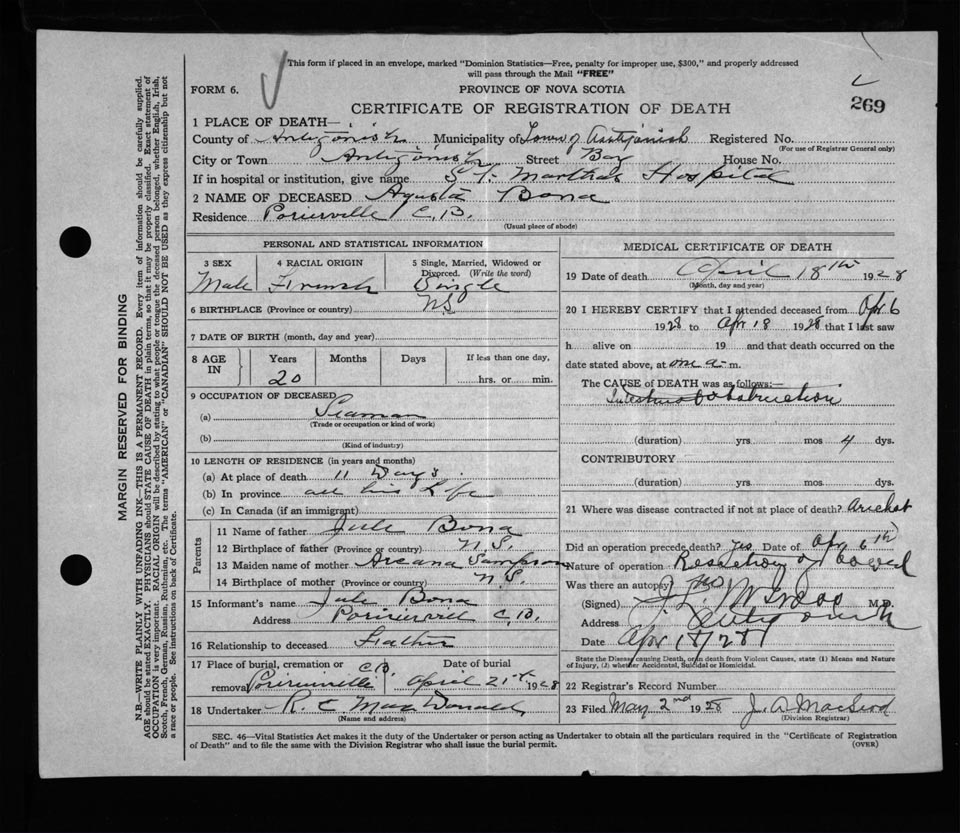 This form if placed in an envelope, marked "Dominion Statistics—Free, penalty for improper use, $300," and properly addressed
will pass through the Mail "FREE"
FORM 6.
PROVINCE OF NOVA SCOTIA
269
CERTIFICATE OF REGISTRATION OF DEATH
1 PLACE OF DEATH—
County of Antigonish Municipality of Town of Antigonish Registered No.
(For use of Registrar General only)
City or Town Antigonish Street Bay House No.
If in hospital or institution, give name St. Marthas Hospital
2 NAME OF DECEASED Agusta Bona
Residence Porierville C.B.
(Usual place of abode)
PERSONAL AND STATISTICAL INFORMATION
3 SEX 4 RACIAL ORIGIN 5 Single, Married, Widowed or Divorced. (Write the word)
Male French Single
6 BIRTHPLACE (Province or country) NS
7 DATE OF BIRTH (month, day and year)
8 AGE IN Years Months Days If less than one day,
20 hrs. or min.
9 OCCUPATION OF DECEASED
(a) Seaman
(Trade or occupation or kind of work)
(b)
(Kind of industry)
10 LENGTH OF RESIDENCE (in years and months)
(a) At place of death 11 Days
(b) In province all his Life
(c) In Canada (if an immigrant)
Parents
11 Name of father Jule Bona
12 Birthplace of father (Province or country) N.S.
13 Maiden name of mother Arcana Sampson
14 Birthplace of mother (Province or country) N.S.
15 Informant's name Jule Bona
Address Porierville C.B.
16 Relationship to deceased Father
17 Place of burial, cremation or removal Date of burial
C.B. April 21st 1928
18 Undertaker R. C. MacDonald
(Name and address)
MEDICAL CERTIFICATE OF DEATH
19 Date of death April 18th 1928
(Month, day and year)
20 I HEREBY CERTIFY that I attended deceased from Apr 6
1928 to Apr 18 1928 that I last saw
h alive on 19 and that death occurred on the
date stated above, at one a. m.
The CAUSE OF DEATH was as follows:—
Intestinal obstruction
(duration) yrs. mos 4 dys.
CONTRIBUTORY
(duration) yrs. mos. dys.
21 Where was disease contracted if not at place of death? Arichat
Did an operation precede death? Yes Date of Apr 6th
Nature of operation Resection of bowel
Was there an autopsy?
(Signed) M.D.
Address Antigonish
Date Apr 18/28
State the Disease causing Death, or in death from Violent Causes, state (1) Means and Nature
of Injury, (2) whether Accidental, Suicidal or Homicidal.
22 Registrar's Record Number
23 Filed May 2nd 1928 J. A. MacLeod
(Division Registrar)
SEC. 46—Vital Statistics Act makes it the duty of the Undertaker or person acting as Undertaker to obtain all the particulars required in the "Certificate of Registration
of Death" and to file the same with the Division Registrar who shall issue the burial permit.
(OVER)
MARGIN RESERVED FOR BINDING
N.B.—WRITE PLAINLY WITH UNFADING INK—THIS IS A PERMANENT RECORD. Every item of information should be carefully supplied.
AGE should be stated EXACTLY. PHYSICIANS should STATE CAUSE OF DEATH in plain terms, so that it may be properly classified. Exact statement of
OCCUPATION is very important. RACIAL ORIGIN will be described by stating to what people or tongue the deceased person belonged, whether English, Irish,
Scotch, French, German, Russian, Ruthenian, etc. The terms "AMERICAN" or "CANADIAN" SHOULD NOT BE USED as they express citizenship but not
a race or people. See instructions on back of Certificate.